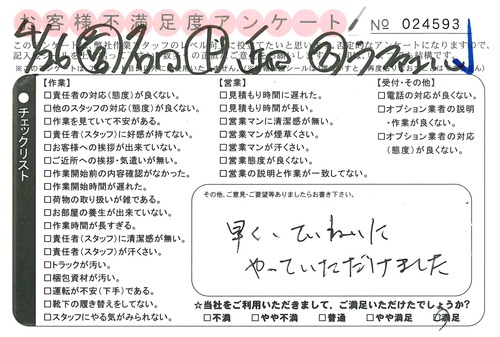 お客様不満足度アンケート
No 024593
チェックリスト
【作業】
□責任者の対応(態度)が良くない。
□他のスタッフの対応(態度)が良くない。
□作業を見ていて不安がある。
□責任者(スタッフ)に好感が持てない。
□お客様への挨拶が出来ていない。
□ご近所への挨拶・気遣いが無い。
□作業開始前の内容確認がなかった。
□作業開始時間が遅れた。
□荷物の取り扱いが雑である。
□お部屋の養生が出来ていない。
□作業時間が長すぎる。
□責任者(スタッフ)に清潔感が無い。
□責任者(スタッフ)が汗くさい。
□トラックが汚い。
□梱包資材が汚い。
□運転が不安(下手)である。
□靴下の履き替えをしてない。
□スタッフにやる気がみられない。
【営業】
□見積もり時間に遅れた。
□見積もり時間が長い。
□営業マンに清潔感が無い。
□営業マンが煙草くさい。
□営業マンが汗くさい。
□営業態度が良くない。
□営業の説明と作業が一致してない。
【受付・その他】
□電話の対応が良くない。
□オプション業者の説明
・作業が良くない。
□オプション業者の対応
(態度)が良くない。
その他、ご意見・ご要望等ありましたらお書き下さい。
早く、ていねいに
やっていただけました
☆当社をご利用いただきまして、ご満足いただけたでしょうか?
□不満 □やや不満 □普通 □やや満足 □満足